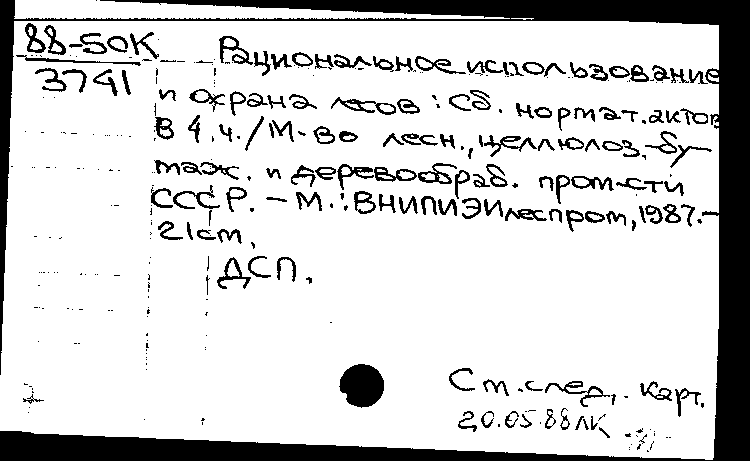 88-50К
3741
Рациональное использование
и охрана лесов: Сб. нормат. актов
В 4 ч. / М-во лесн., целлюлоз.-бу-
маж. и деревообраб. пром-сти
СССР. – М.: ВНИПИЭИлеспром, 1987. –
21 см.
ДСП.
См. след. карт.
20.05.88 ЛК